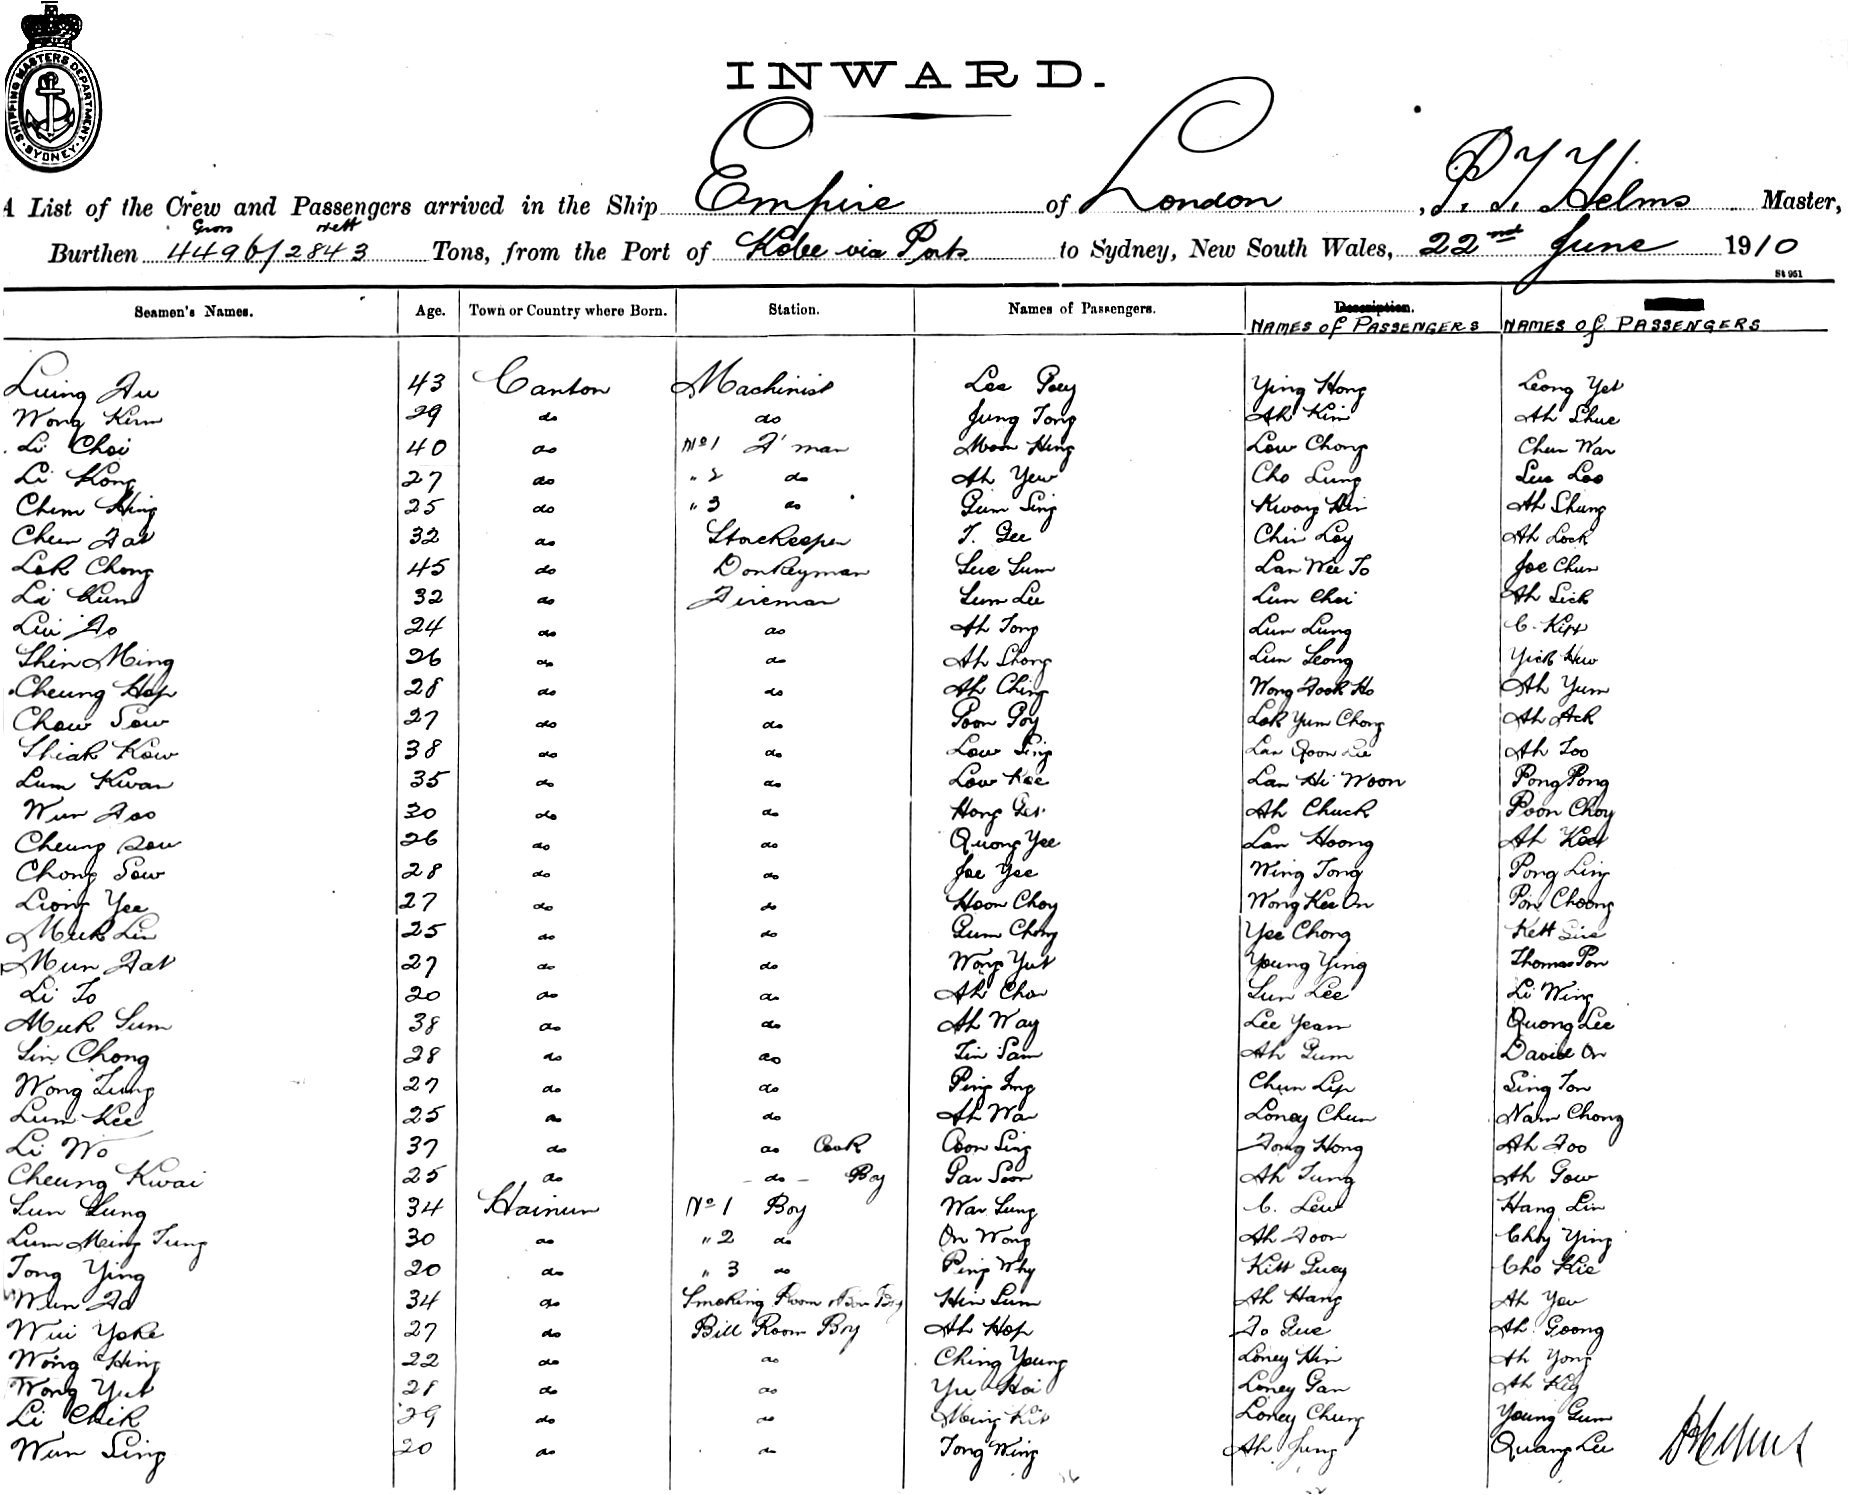 SHIPPING MASTERS DEPARTMENT
SYDNEY
INWARD.
A List of the Crew and Passengers arrived in the Ship Empire of London, P. T. Helms Master,
Gross Nett
Burthen 4496/2843 Tons, from the Port of Kobe via Ports to Sydney, New South Wales, 22nd June 1910
St 951
Seamen's Names. Age. Town or Country where Born. Station. Names of Passengers. Description.
NAMES OF PASSENGERS NAMES OF PASSENGERS
Luing Fu 43 Canton Machinist Lee Poey Ying Hong Leong Yet
Wong Kum 29 do do Jung Tong Ah Kim Ah Shue
Li Choi 40 do No 1 F'man Moon Hing Low Chong Chun War
Li Kong 27 do " 2 do Ah Yew Cho Lung Lee Loo
Chem Hing 25 do " 3 do Gum Sing Kwong Hin Ah Shung
Chun Fat 32 do Storekeeper T. Gee Chin Loy Ah Lock
Lok Chong 45 do Donkeyman Sue Sum Lan Wee To Joe Chun
Li Kum 32 do Fireman Sum Lee Lun Choi Ah Sick
Lui Fo 24 do do Ah Tong Lun Lung C. Kipp
Shin Ming 26 do do Ah Shong Lun Leong Yick Hew
Cheung Hop 28 do do Ah Ching Wong Fook Ho Ah Yum
Chow Sow 27 do do Poon Poy Lok Yum Chong Ah Ack
Shiak Kow 38 do do Low Sing Lan Goon Lee Ah Too
Lum Kwan 35 do do Low Kee Lan Hi Woon Pong Pong
Wun Foo 30 do do Hong Get Ah Chuck Poon Choy
Cheung Sow 26 do do Quong Yee Lan Hoong Ah Keet
Chong Sow 28 do do Joe Yee Wing Tong Pong Ling
Liong Yee 27 do do Hoon Choy Wong Kee On Pon Choong
Muk Lin 25 do do Gum Chong Yee Chong Kett Sue
Mun Fat 27 do do Wong Yut Young Ying Thomas Pon
Li To 20 do do Ah Chor Sun Lee Li Wing
Muk Sum 38 do do Ah Way Lee Yean Quong Lee
Sin Chong 28 do do Tin Sam Ah Gum David On
Wong Tung 27 do do Ping Ing Chun Lip Sing Ton
Lum Kee 25 do do Ah War Loney Chun Nam Chong
Li Wo 37 do do Cook Coon Sing Fong Hong Ah Foo
Cheung Kwai 25 do - do - Boy Gar Soon Ah Tung Ah Gow
Sun Lung 34 Hainun No 1 Boy War Sung C. Lew Hang Lin
Lum Ming Tung 30 do " 2 do On Wong Ah Foon Choy Ying
Tong Ying 20 do " 3 do Ping Why Kitt Guey Cho Kie
Wun Fa 34 do Smoking Room Boy Hin Sum Ah Hang Ah You
Wui Yoke 27 do Bill Room Boy Ah Hop Fo Gue Ah Goong
Wong Hing 22 do do Ching Young Loney Hin Ah Yong
Wong Yut 28 do do Yu Hoi Loney Gan Ah Kig
Li Chik 29 do do Ming Kit Loney Chung Young Gum
Wun Sing 20 do do Tong Wing Ah Jung Quang Lee